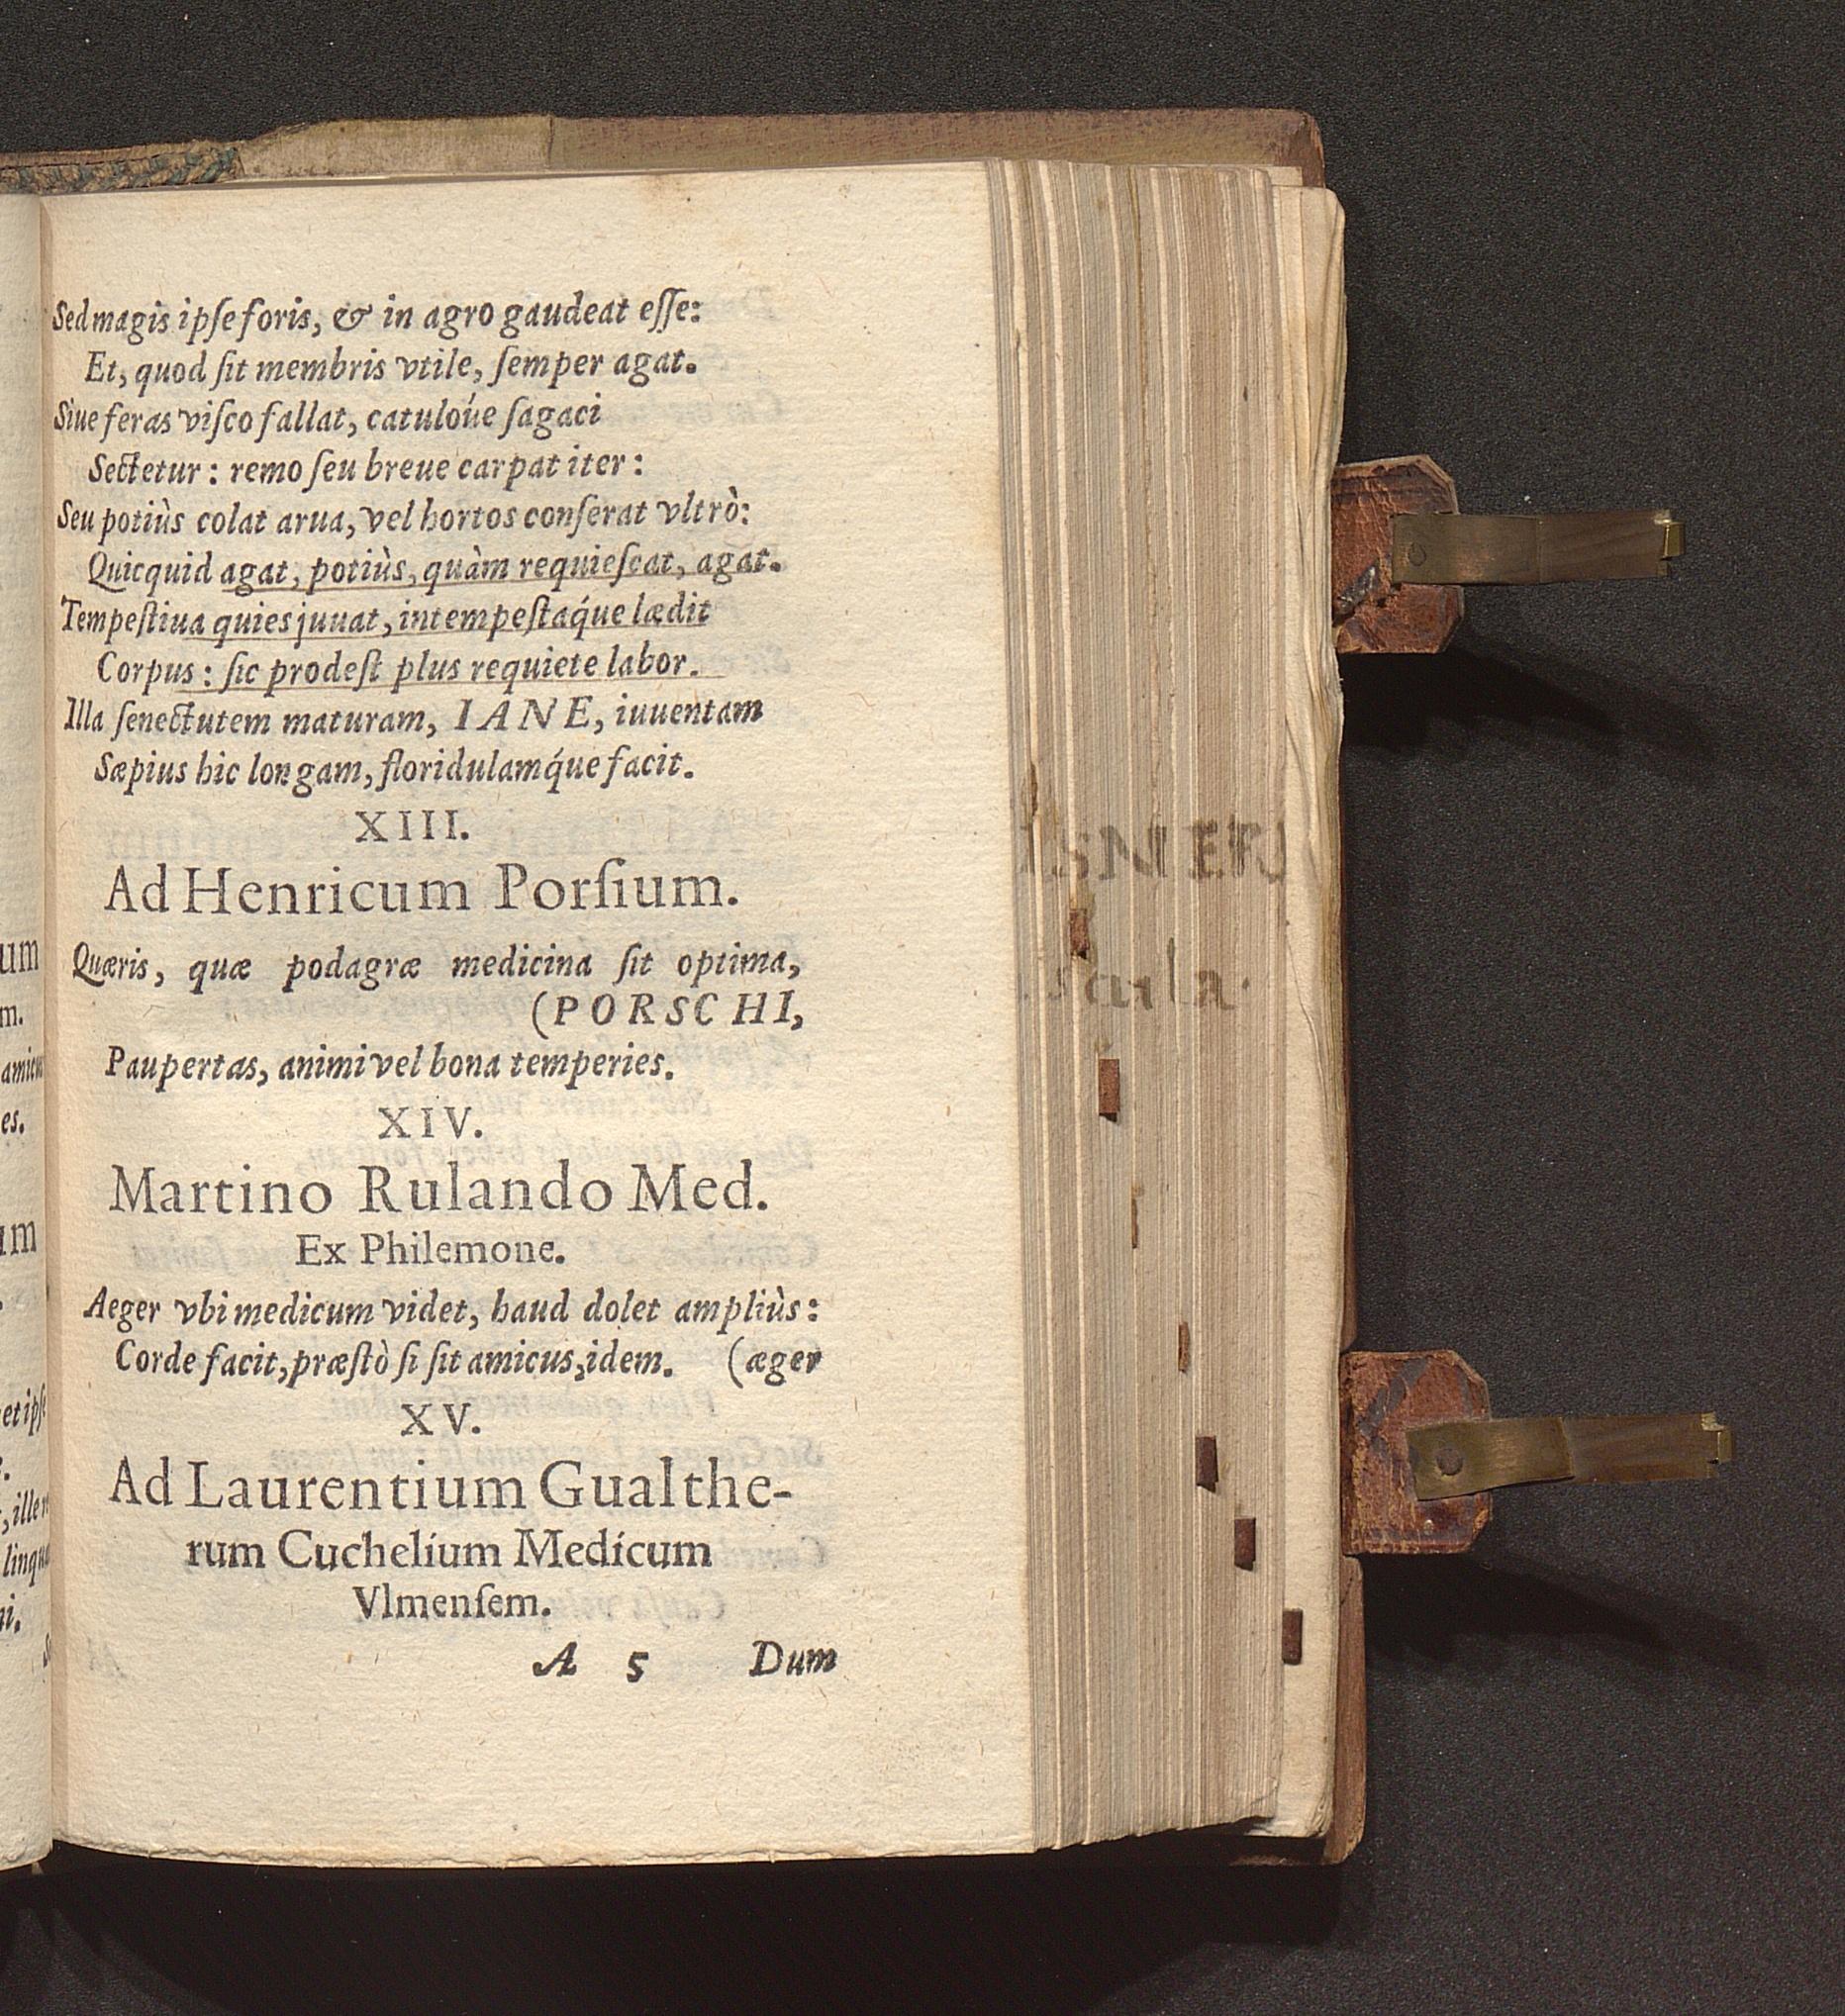 Sed magis ipſe foris, & in agro gaudeat eſſe:
Et, quod ſit membris vtile, ſemper agat.
Siue feras viſco fallat, catulóue ſagaci
Sectetur: remo ſeu breue carpat iter:
Seu potiùs colat arua, vel hortos conſerat vltrò:
Quicquid agat, potiùs, quàm requieſcat, agat.
Tempeſtiua quies juuat, intempeſtaq́ue lædit
Corpus: ſic prodeſt plus requiete labor.
Illa ſenectutem maturam, IANE, iuuentam
Sæpius hic longam, floridulamq́ue facit.
XIII.
Ad Henricum Porſium.
Quæris, quæ podagræ medicina ſit optima,
(PORSCHI,
Paupertas, animi vel bona temperies.
XIV.
Martino Rulando Med.
Ex Philemone.
Aeger vbi medicum videt, haud dolet ampliùs:
Corde facit, præſtò ſi ſit amicus, idem. (æger
XV.
Ad Laurentium Gualthe-
rum Cuchelium Medicum
Vlmenſem.
A 5 Dum